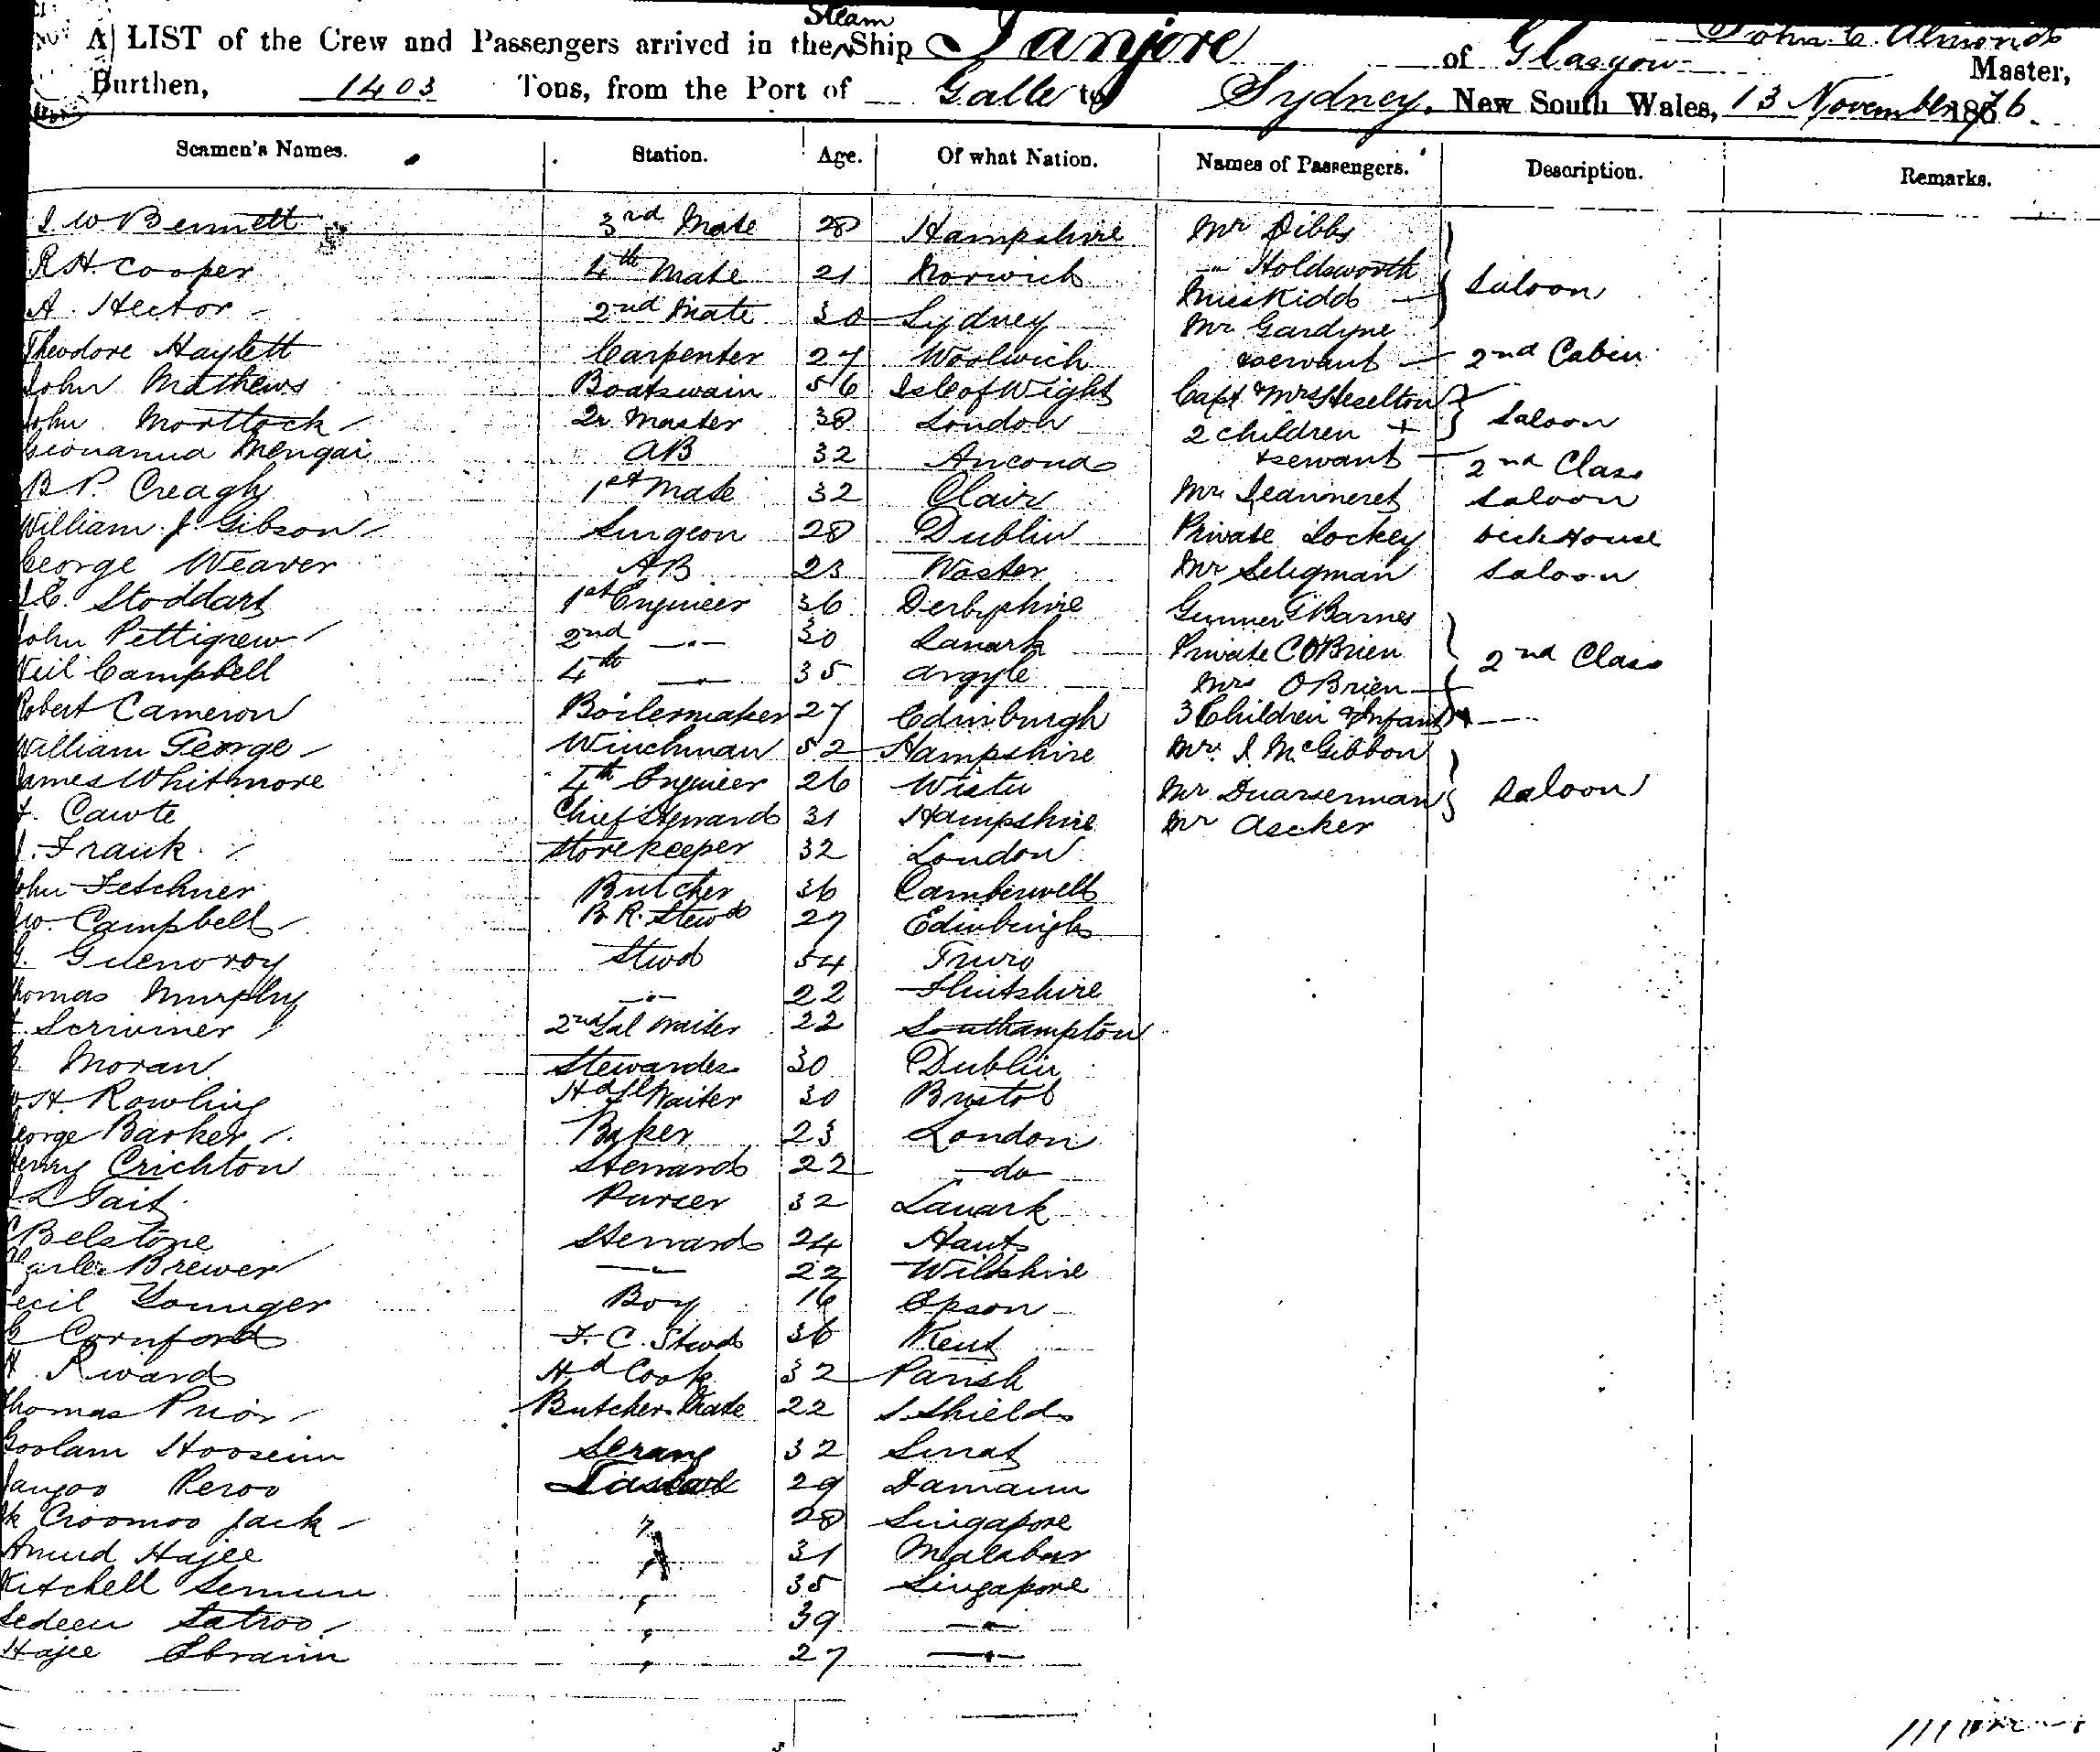 A LIST of the Crew and Passengers arrived in the Steam Ship Tanjore of Glasgow John C. Almond Master,
Burthen, 1403 Tons, from the Port of Galle to Sydney, New South Wales, 13 November 1876.
Seamen's Names. Station. Age. Of what Nation. Names of Passengers. Description. Remarks.
J. W. Bennett 3rd Mate 28 Hampshire Mr Dibbs
R H. Cooper 4th Mate 21 Norwich " Holdsworth Saloon
A. Hector 2nd Mate 30 Sydney Miss Kidd
Theodore Haylett Carpenter 27 Woolwich Mr Gardyne
John Mathews Boatswain 56 Isle of Wight servant 2nd Cabin
John Mortlock Qr Master 38 London Capt & Mrs Heselton
Mengai AB 32 Ancona 2 children + Saloon
B P. Creagh 1st Mate 32 Clair + servant 2nd Class
William J. Gibson Surgeon 28 Dublin Mr Jeanneret Saloon
George Weaver AB 23 Private Lockey Deck House
J. C. Stoddart 1st Engineer 36 Derbyshire Mr Seligman Saloon
John Pettigrew 2nd " 30 Lanark Gunner G Barnes
Neil Campbell 4th " 35 Argyle Private C OBrien 2nd Class
Robert Cameron Boilermaker 27 Edinburgh Mrs OBrien
William George Winchman 52 Hampshire 3 Children & Infant
James Whitmore 4th Engineer 26 Mr. J. McGibbon
Cawte Chief Steward 31 Hampshire Mr Saloon
J. Frank Storekeeper 32 London Mr Ascher
John Fetchner Butcher 36 Camberwell
W. Campbell B R. Stewd 27 Edinburgh
G. Guenoroy Stwd 54 Truro
Thomas Murphy " 22 Flintshire
Scriviner 2nd Sal Waiter 22 Southampton
Moran Stewardess 30 Dublin
H. Rowling Hd Sl Waiter 30 Bristol
George Barker Baker 23 London
Henry Crichton Steward 22 do
Tait Purser 32 Lanark
Belstone Steward 24 Hants
Charles Brewer " 22 Wiltshire
Cecil Younger Boy 16 Epsom
Cornford F. C. Stwd 36 Kent
Rward Hd Cook 32 Parish
Thomas Prior Butchers Mate 22 S. Shields
Goolam Hooseim Serang 32 Surat
Peroo 29 Damaun
Croomoo Jack " 28 Singapore
Amud Hajee " 31 Malabar
Kitchell Semun " 35 Singapore
Sedeen Satroo " 39 "
Hajee Ebraim " 27 "